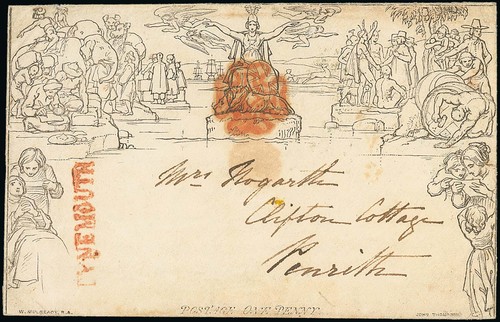 TYNEMOUTH
Mrs Hogarth
Clifton Cottage
Penrith
POSTAGE ONE PENNY.
W. MULREADY, R.A.
JOHN THOMPSON